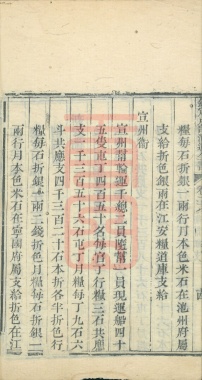 糧每石折銀一兩行月本色米石在池州府屬
支給折色銀兩在江安糧道庫支給
宣州衛
宣州衛領運千總二員隨幫一員現運船四十
五隻屯丁四百五十名每官丁行糧三石共應
支一千三百五十六石屯丁月糧每丁九石六
斗共應支四千三百二十石本折各半折色行
糧每石折銀一兩二錢折色月糧每石折銀一
兩行月本色米石在寧國府屬支給折色在江